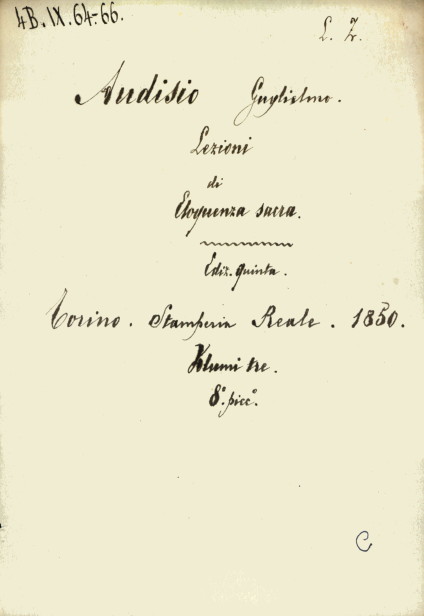 4B.IX.64-66.
L. Z.
Audisio Guglielmo.
Lezioni
di
Eloquenza sacra.
Ediz. quinta.
Torino. Stamperia Reale. 1850.
Volumi tre.
8.° picc.°
C